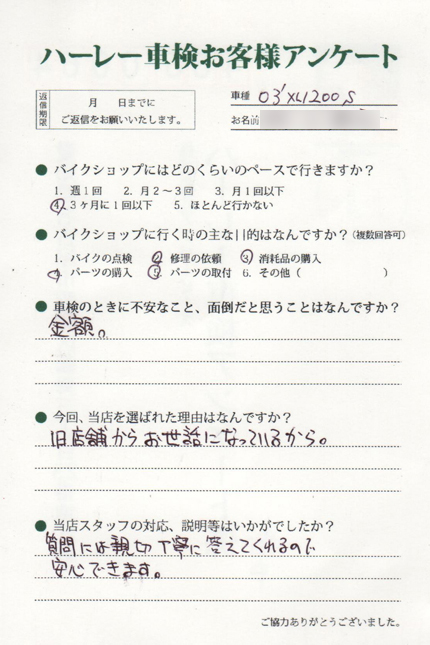 ハーレー車検お客様アンケート
返信期限
月　日までに
ご返信をお願いいたします。
車種 03'XL1200S
お名前
● バイクショップにはどのくらいのペースで行きますか？
1. 週１回　2. 月２～３回　3. 月１回以下
4. ３ヶ月に１回以下　5. ほとんど行かない
● バイクショップに行く時の主な目的はなんですか？（複数回答可）
1. バイクの点検　2. 修理の依頼　3. 消耗品の購入
4. パーツの購入　5. パーツの取付　6. その他（　　　　　）
● 車検のときに不安なこと、面倒だと思うことはなんですか？
金額。
● 今回、当店を選ばれた理由はなんですか？
旧店舗からお世話になっているから。
● 当店スタッフの対応、説明等はいかがでしたか？
質問には親切丁寧に答えてくれるので
安心できます。
ご協力ありがとうございました。